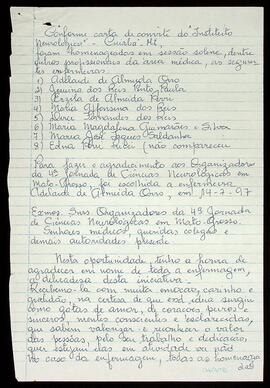 Conforme carta de convite do "Instituto
Neurológico" - Cuiabá - Mt,
foram homenageados em sessão solene, dentre
outros profissionais da área médica, as seguin
tes enfermeiras:
1) Adelaide de Almeida Orro
2) dos Reis Pinto Paula
3) de Almeida Ferri
4) Maria Affonsina dos Reis
5) Dirce Fernandes dos Reis
6) Maria Magdalena Guimarães e Silva
7) Maria José
8) Edna (não compareceu
Para fazer o agradecimento aos Organizadores
da 4ª Jornada de Ciências Neurológicas em
Mato-Grosso, foi escolhida a enfermeira
Adelaide de Almeida Orro, em 14-7-97
Exmos. Snrs Organizadores da 4ª Jornada
de Ciências Neurológicas em Mato-Grosso.
Senhores médicos, queridas colegas e
demais autoridades presente
Nesta oportunidade, tenho a honra de
agradecer em nome de toda a enfermagem,
a delicadeza desta iniciativa.
Recebemo-la com muita emoção, carinho e
gratidão, na certeza de que esta idéia surgiu
como gotas de amor, de corações puros e
sinceros, mentes conscientes e esclarecidas,
que sabem valorizar e reconhecer o valor
das pessoas, pelo seu trabalho e dedicação,
que
No caso da enfermagem, todas as homenage